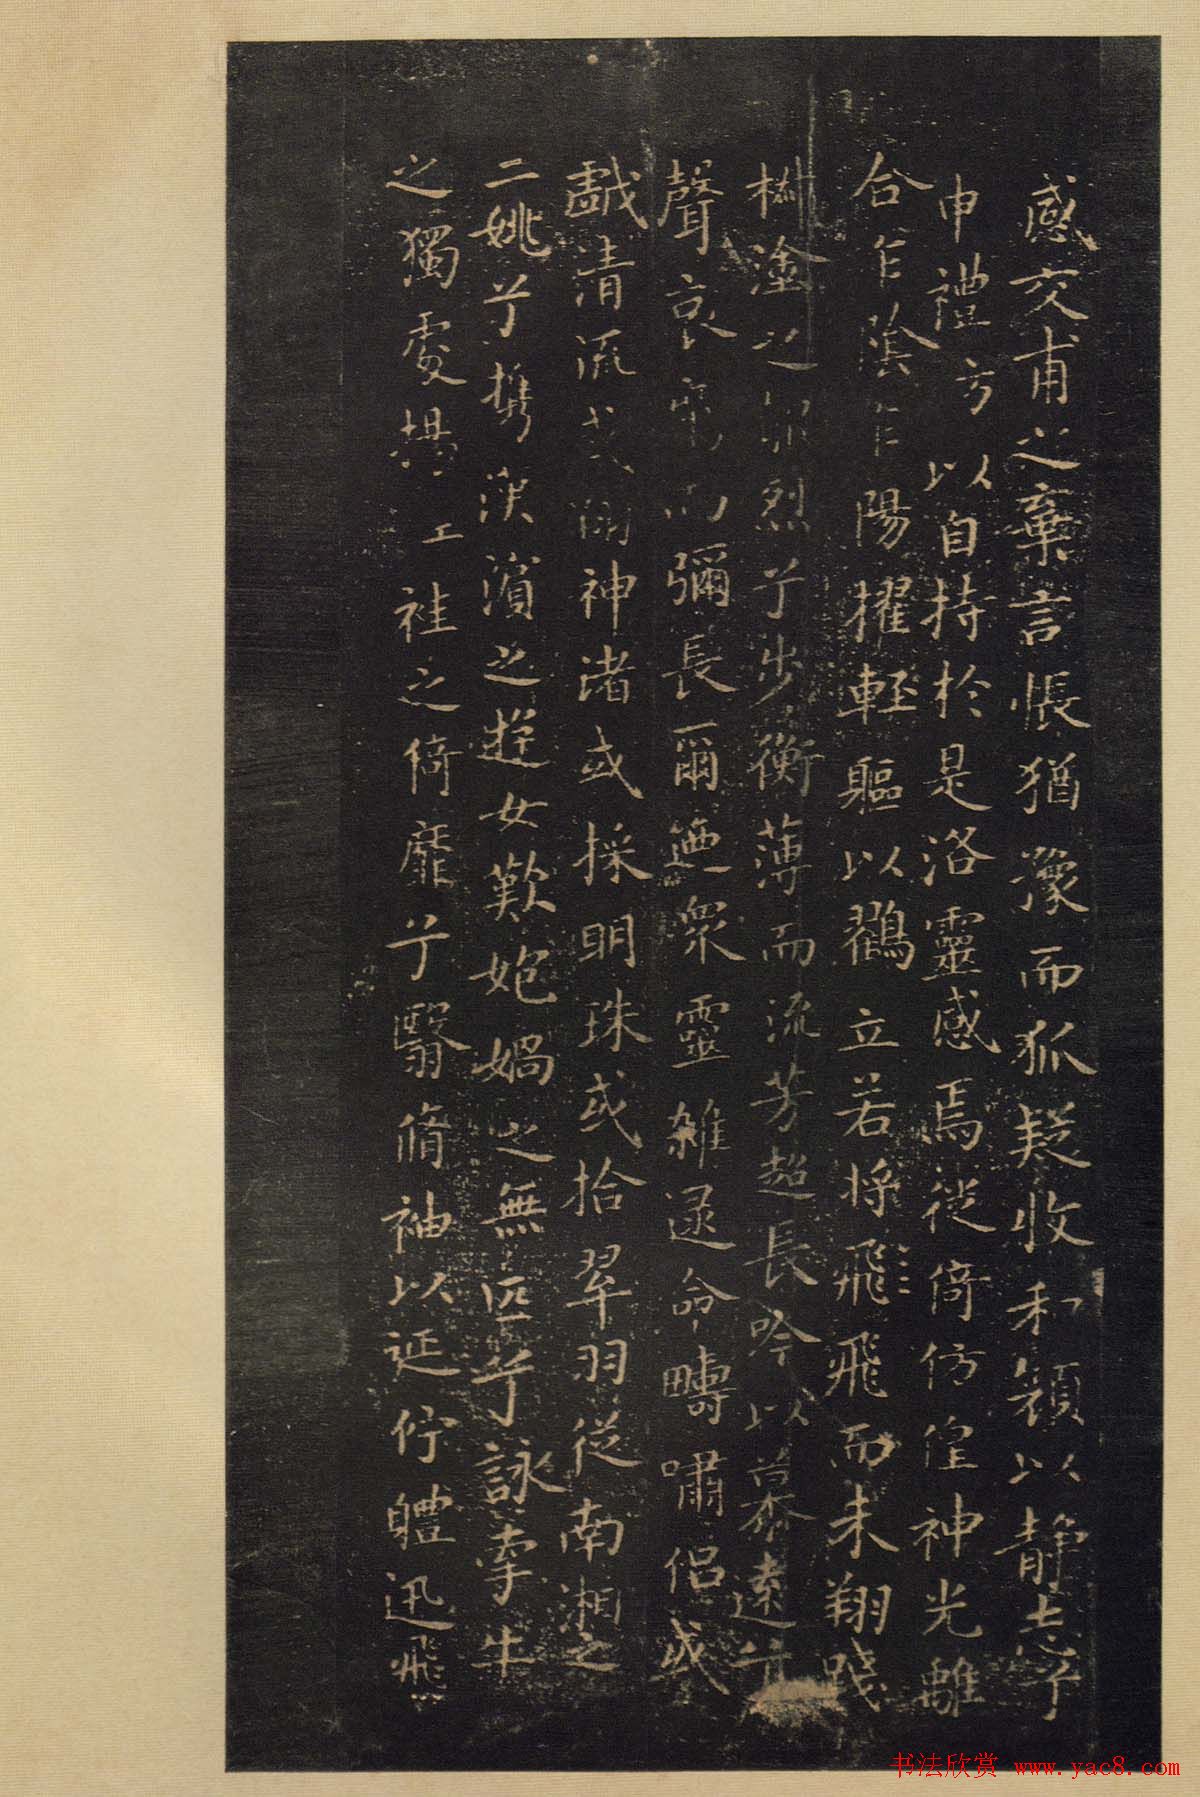 感交甫之棄言悵猶豫而狐疑收和顏以靜志兮
申禮方以自持於是洛靈感焉徙倚仿偟神光離
合乍陰乍陽擢輕軀以鶴立若將飛飛而未翔踐
椒塗之郁烈兮步衡薄而流芳超長吟以慕遠兮
聲哀厲而彌長爾迺衆靈雜遝命疇嘯侶或
戲清流或翔神渚或採明珠或拾翠羽從南湘之
二姚兮攜漢濱之遊女歎娝媧之無匹兮詠牽牛
之獨處揚工袿之倚靡兮翳脩袖以延佇軆迅飛
书法欣赏 www.yac8.com